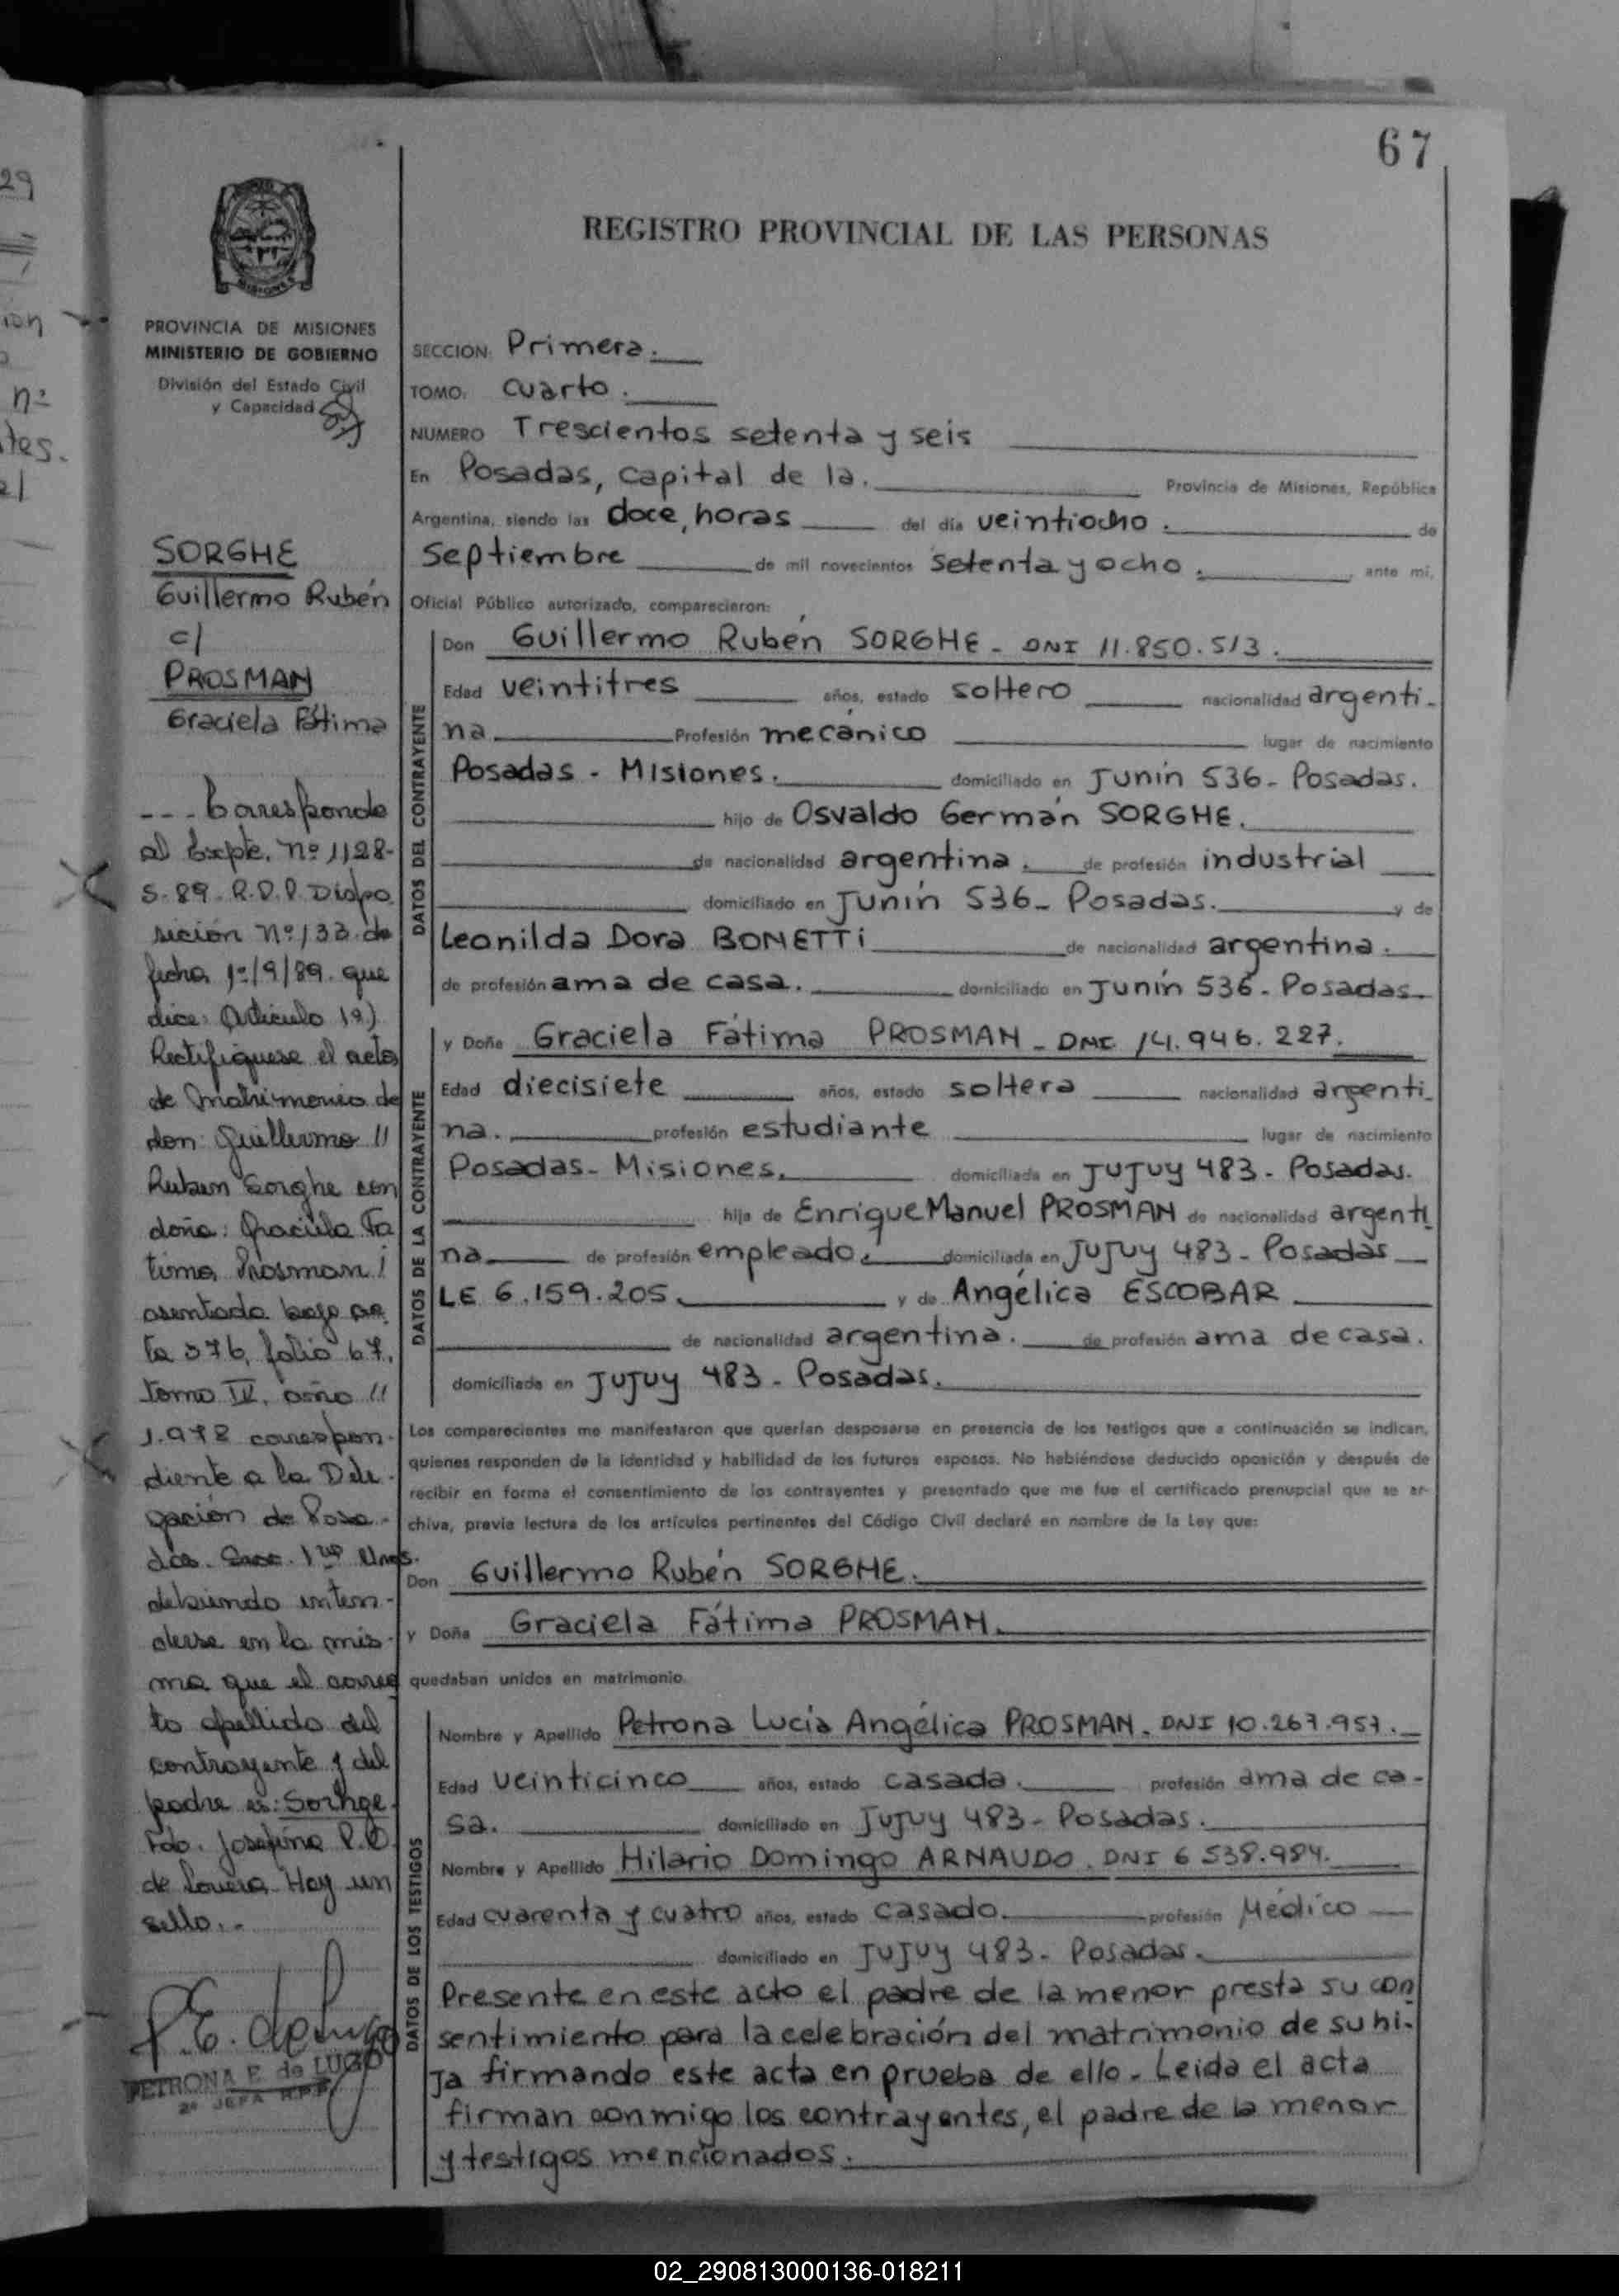 67
29
ion
nº
tes.
el
REGISTRO PROVINCIAL DE LAS PERSONAS
MISIONES
PROVINCIA DE MISIONES
MINISTERIO DE GOBIERNO
División del Estado Civil
y Capacidad
SORGHE
Guillermo Rubén
c/
PROSMAN
Graciela Fátima
--- Corresponde
al Expte. Nº 1128-
S-89-R.P.P. Dispo
sición Nº 133 de
fecha 1º/9/89. que
dice: Artículo 1º)
Rectifíquese el acta
de Matrimonio de
don: Guillermo //
Ruben Sorghe con
doña: Graciela Fa
tima Prosman /
asentada bajo ac
ta 376, folio 67,
tomo IV, año //
1.978 correspon-
diente a la Dele-
gación de Posa-
das. Secc. 1ra
debiendo enten-
derse en la mis-
ma que el correc
to apellido del
contrayente y del
padre es: Sorhge.
Fdo. Josefina R.O.
de Lovera. Hay un
sello.-
PETRONA E. de LUGO
2º JEFA R.P.P.
SECCION: Primera.
TOMO: Cuarto.
NUMERO Trescientos setenta y seis
En Posadas, capital de la. Provincia de Misiones, República
Argentina, siendo las doce, horas del día veintiocho. de
Septiembre de mil novecientos setenta y ocho. ante mí,
Oficial Público autorizado, comparecieron:
DATOS DEL CONTRAYENTE
Don Guillermo Rubén SORGHE - DNI 11.850.513.
Edad veintitres años, estado soltero nacionalidad argenti-
na Profesión mecánico lugar de nacimiento
Posadas - Misiones. domiciliado en Junín 536- Posadas.
hijo de Osvaldo Germán SORGHE.
de nacionalidad argentina. de profesión industrial
domiciliado en Junín 536- Posadas. y de
Leonilda Dora BONETTI de nacionalidad argentina.
de profesión ama de casa. domiciliado en Junín 536- Posadas.
DATOS DE LA CONTRAYENTE
y Doña Graciela Fátima PROSMAN - DNI 14.946.227.
Edad diecisiete años, estado soltera nacionalidad argenti-
na. profesión estudiante lugar de nacimiento
Posadas- Misiones. domiciliada en JUJUY 483- Posadas.
hija de Enrique Manuel PROSMAN de nacionalidad argenti
na de profesión empleado. domiciliada en JUJUY 483- Posadas
LE 6.159.205. y de Angélica ESCOBAR
de nacionalidad argentina. de profesión ama de casa.
domiciliada en JUJUY 483- Posadas.
Los comparecientes me manifestaron que querían desposarse en presencia de los testigos que a continuación se indican,
quienes responden de la identidad y habilidad de los futuros esposos. No habiéndose deducido oposición y después de
recibir en forma el consentimiento de los contrayentes y presentado que me fue el certificado prenupcial que se ar-
chiva, previa lectura de los artículos pertinentes del Código Civil declaré en nombre de la Ley que:
Don Guillermo Rubén SORGHE.
y Doña Graciela Fátima PROSMAN.
quedaban unidos en matrimonio.
DATOS DE LOS TESTIGOS
Nombre y Apellido Petrona Lucía Angélica PROSMAN. DNI 10.267.957.
Edad veinticinco años, estado casada. profesión ama de ca-
sa. domiciliado en JUJUY 483- Posadas.
Nombre y Apellido Hilario Domingo ARNAUDO. DNI 6 538.984.
Edad cuarenta y cuatro años, estado casado. profesión Médico
domiciliado en JUJUY 483- Posadas.
Presente en este acto el padre de la menor presta su con
sentimiento para la celebración del matrimonio de su hi-
ja firmando este acta en prueba de ello. Leida el acta
firman conmigo los contrayentes, el padre de la menor
y testigos mencionados.
02_290813000136-018211